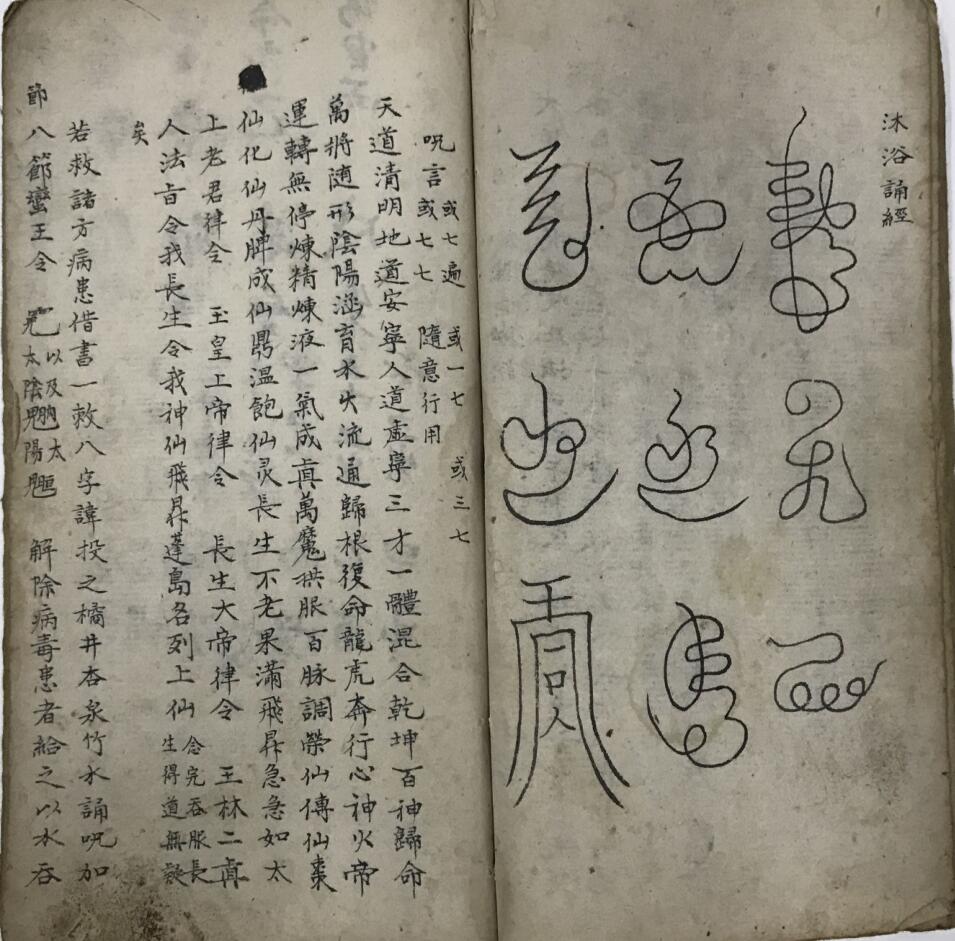 沐浴誦經
呪言或七遍 或一七 或三七
或七七 隨意行用
天道清明地道安寧人道虛寧三才一體混合乾坤百神歸命
萬將随形陰陽涵育水火流通歸根復命龍虎奔行心神火帝
運轉無停煉精煉液一氣成真萬魔拱服百脉調榮仙傳仙棗
仙化仙丹脾成仙鼎溫飽仙灵長生不老果滿飛昇急急如太
上老君律令 玉皇上帝律令 長生大帝律令 王林二真
人法旨令我長生令我神仙飛昇蓬島各列上仙 念完吞服長生得道無疑
矣
若救諸方病患借書一敕八字諱投之橘井杏泉竹水誦呪加
節八節蠻王令 以及太陰太陽 解除病毒患者給之以水吞